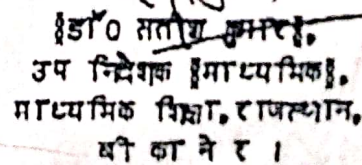 [डॉ0 सतीश कुमार],
उप निदेशक [माध्यमिक],
माध्यमिक शिक्षा, राजस्थान,
बी का ने र ।